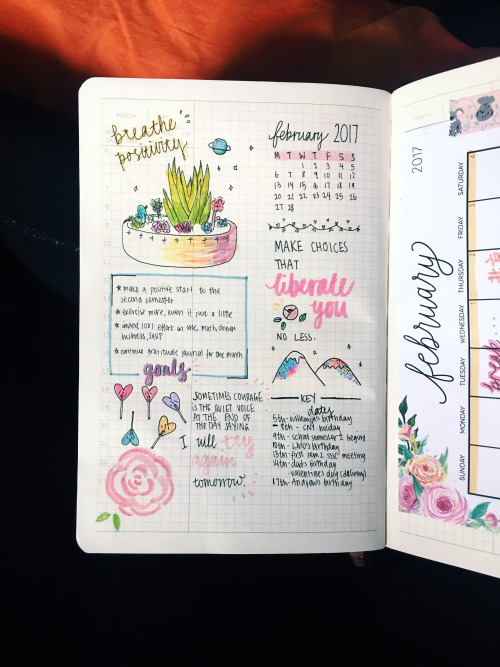 MONTH
breathe
positivity
* make a positive start to the
second semester
* exercise more, even if just a little
* invest 100% effort on
business,
* continue gratitude journal for the month
goals
SOMETIMES COURAGE
IS THE QUIET VOICE
AT THE END OF
THE DAY SAYING
I will try
again
tomorrow.
february 2017
M T W T F S S
1 2 3 4 5
6 7 8 9 10 11 12
13 14 15 16 17 18 19
20 21 22 23 24 25 26
27 28
MAKE CHOICES
THAT
liberate
you
NO LESS.
KEY
dates
5th - birthday
- 8th - CNY holiday
9th - school semester 2 begins
10th - birthday
13th - first meeting
14th - dad's birthday
- valentine's day (delivery)
17th - Andrew's birthday
MONTH
2017
february
SUNDAY
MONDAY
TUESDAY
WEDNESDAY
THURSDAY
FRIDAY
SATURDAY
break